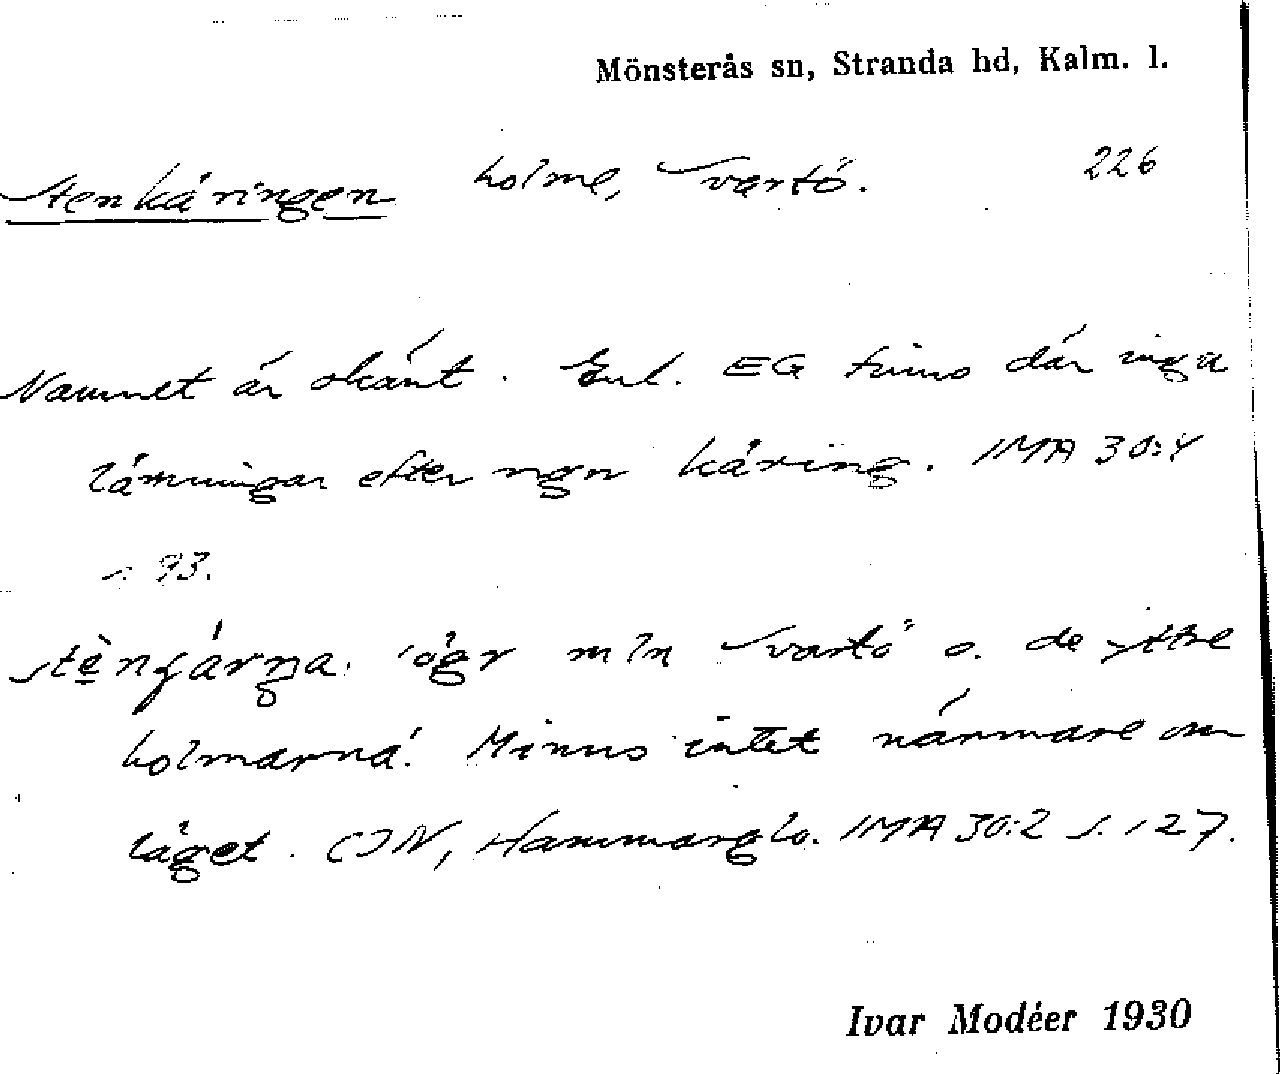 Mönsterås sn, Stranda hd, Kalm. l.
Stenkäringen holme, Svartö. 226
Namnet är okänt. Enl. EG finns där inga
lämningar efter ngn käring. IMA 30:4
s. 93.
läger mln Svartö o. de yttre
holmarna. Minns intet närmare om
läget. CJN, Hammarglo. IMA 30:2 s. 127.
Ivar Modéer 1930